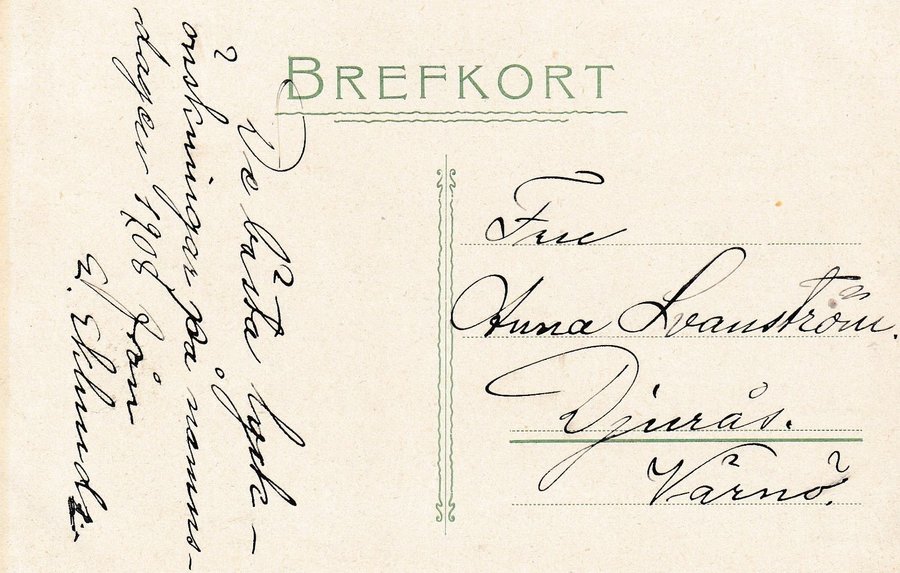 BREFKORT
De bästa lyck-
önskningar på namns-
dagen 1908 från
E. Eklund.
Fru
Anna Svanström.
Djurås.
Värnö.